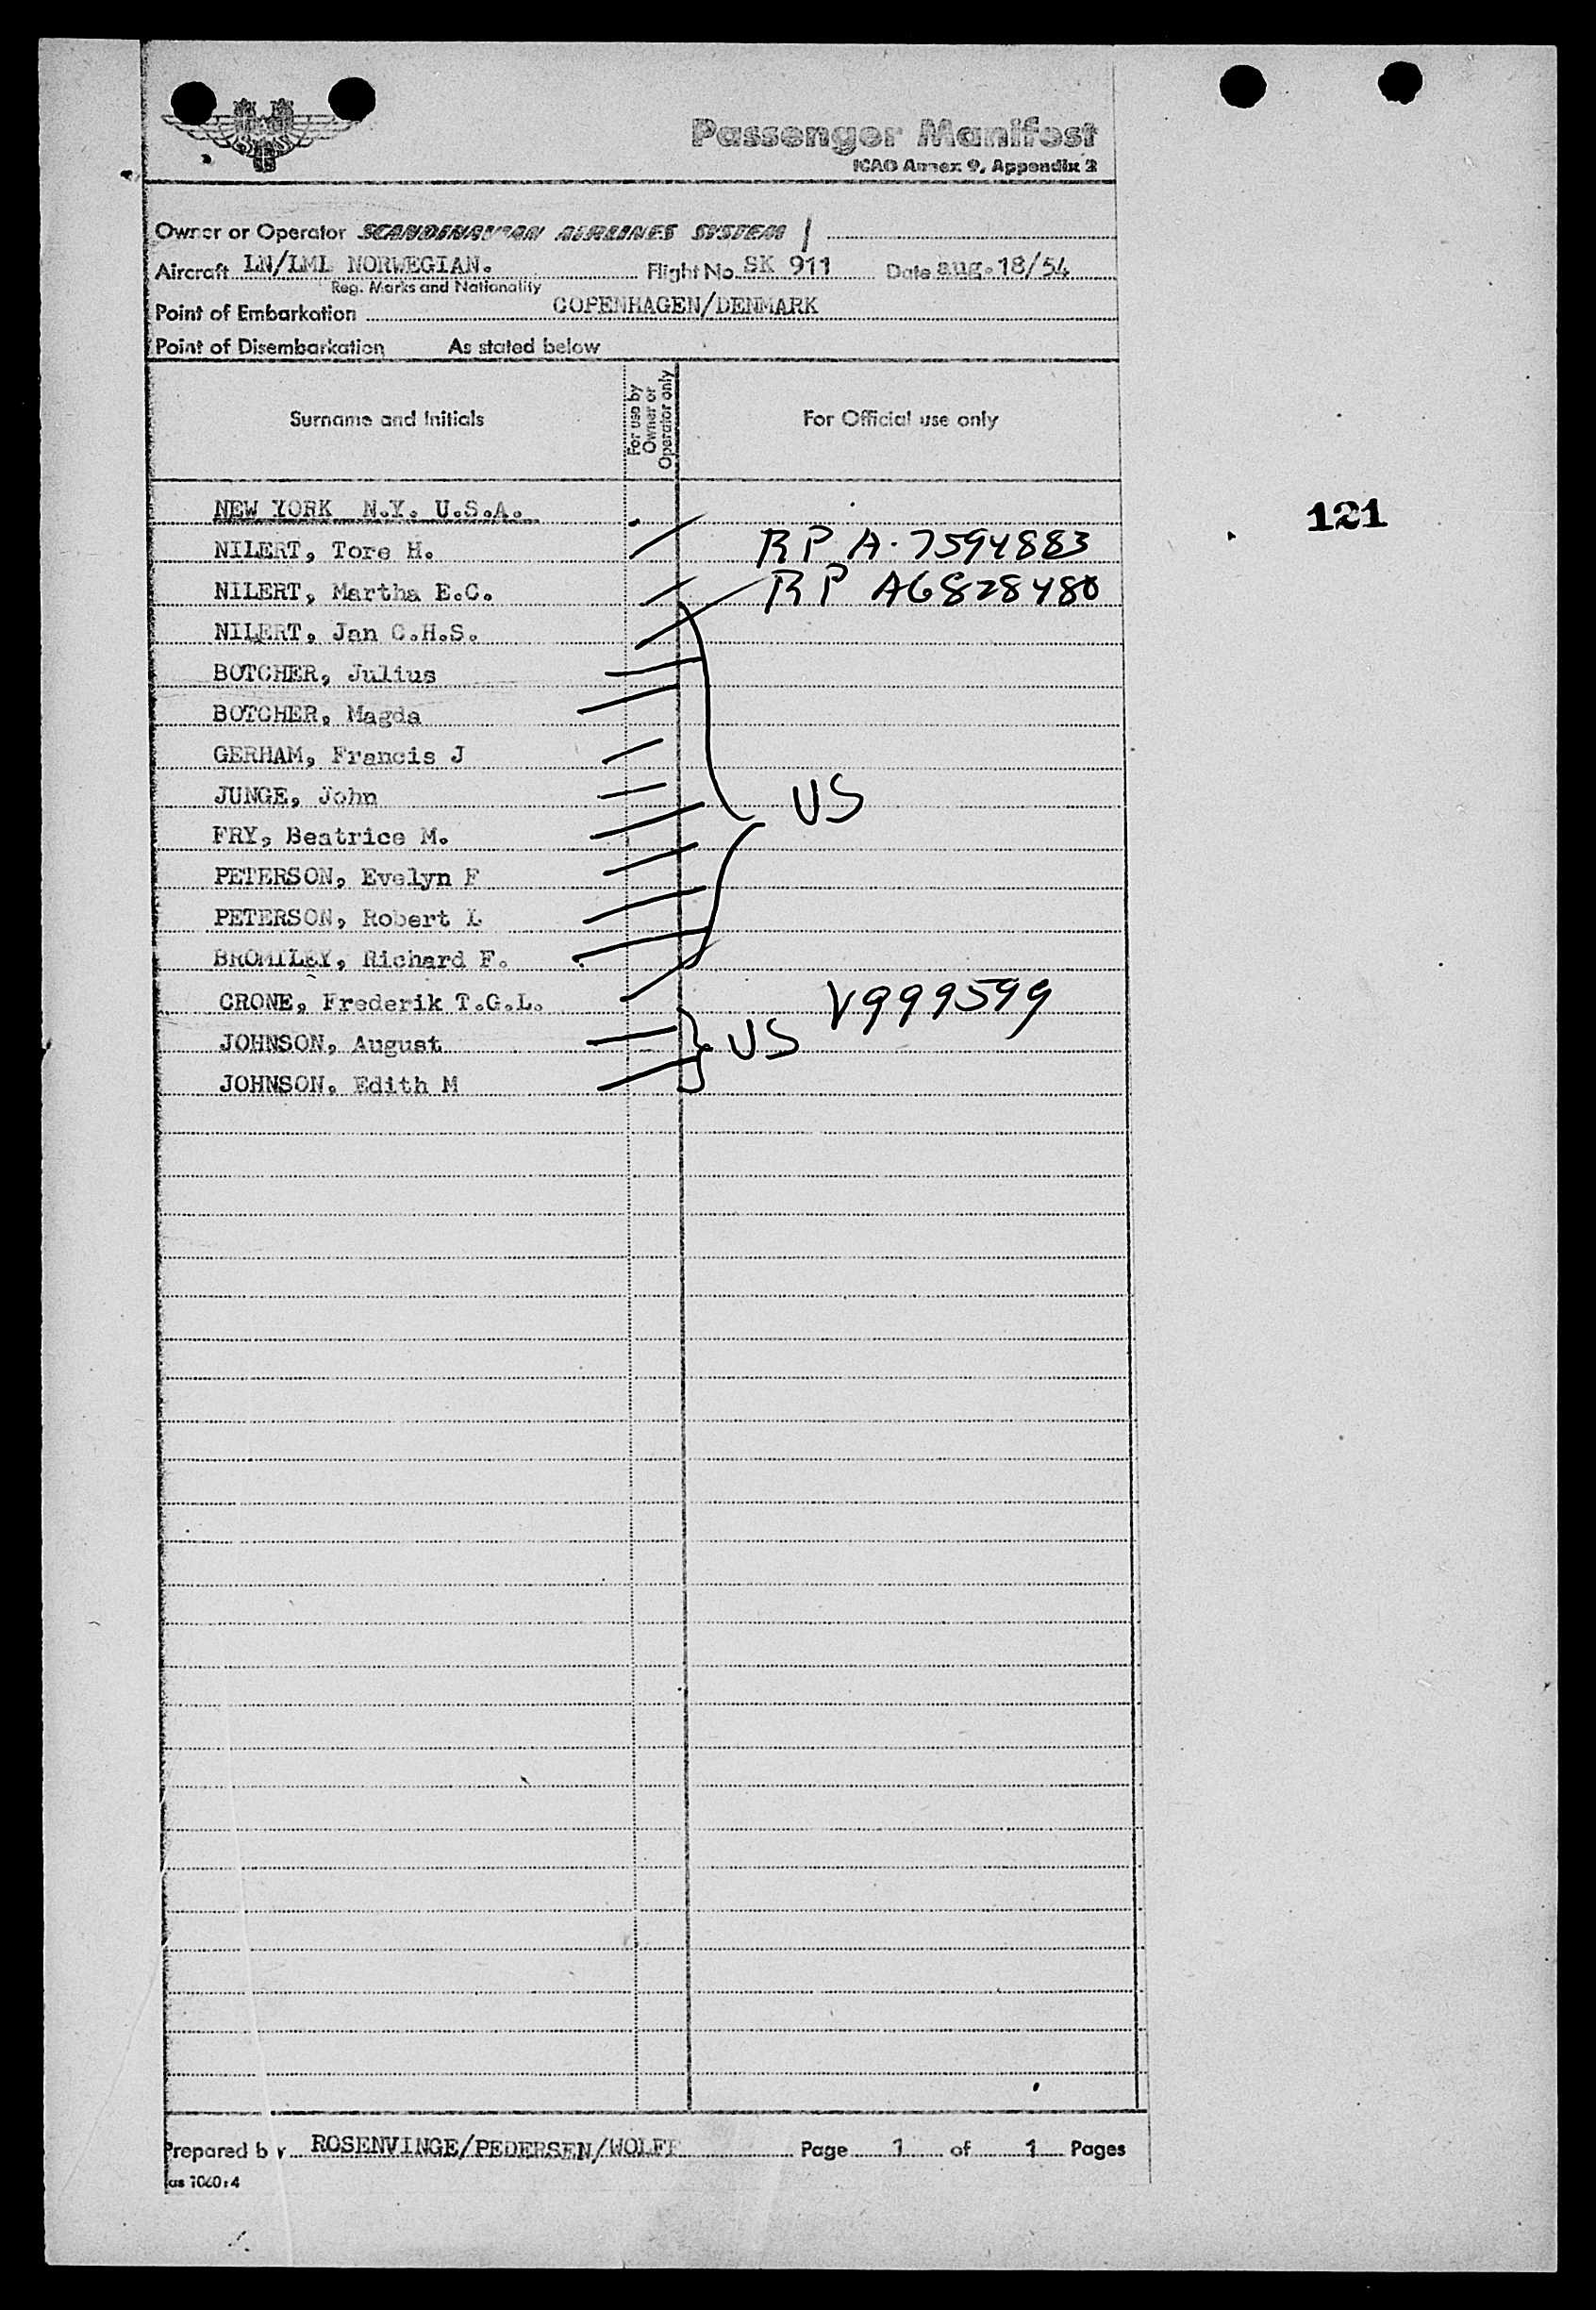 SAS
Passenger Manifest
ICAO Annex 9, Appendix 2
Owner or Operator SCANDINAVIAN AIRLINES SYSTEM
Aircraft LN/LML NORWEGIAN. Flight No. SK 911 Date aug. 18/54
Reg. Marks and Nationality
Point of Embarkation COPENHAGEN/DENMARK
Point of Disembarkation As stated below
Surname and Initials
For use by
Owner or
Operator only
For Official use only
NEW YORK N.Y. U.S.A.
121
NILERT, Tore H. RP A-7594883
NILERT, Martha E.C. RP A6828480
NILERT, Jan C.H.S.
BOTCHER, Julius
BOTCHER, Magda
GERHAM, Francis J
JUNGE, John US
FRY, Beatrice M.
PETERSON, Evelyn F
PETERSON, Robert L
BROMILEY, Richard F.
CRONE, Frederik T.G.L. V999599
JOHNSON, August US
JOHNSON, Edith M
Prepared by ROSENVINGE/PEDERSEN/WOLFF Page 1 of 1 Pages
as 1060:4